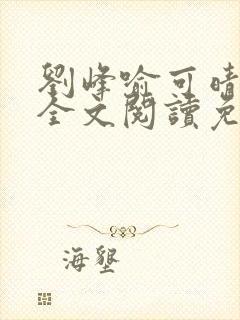 劉峰喻可晴
全文閱讀免
海墾